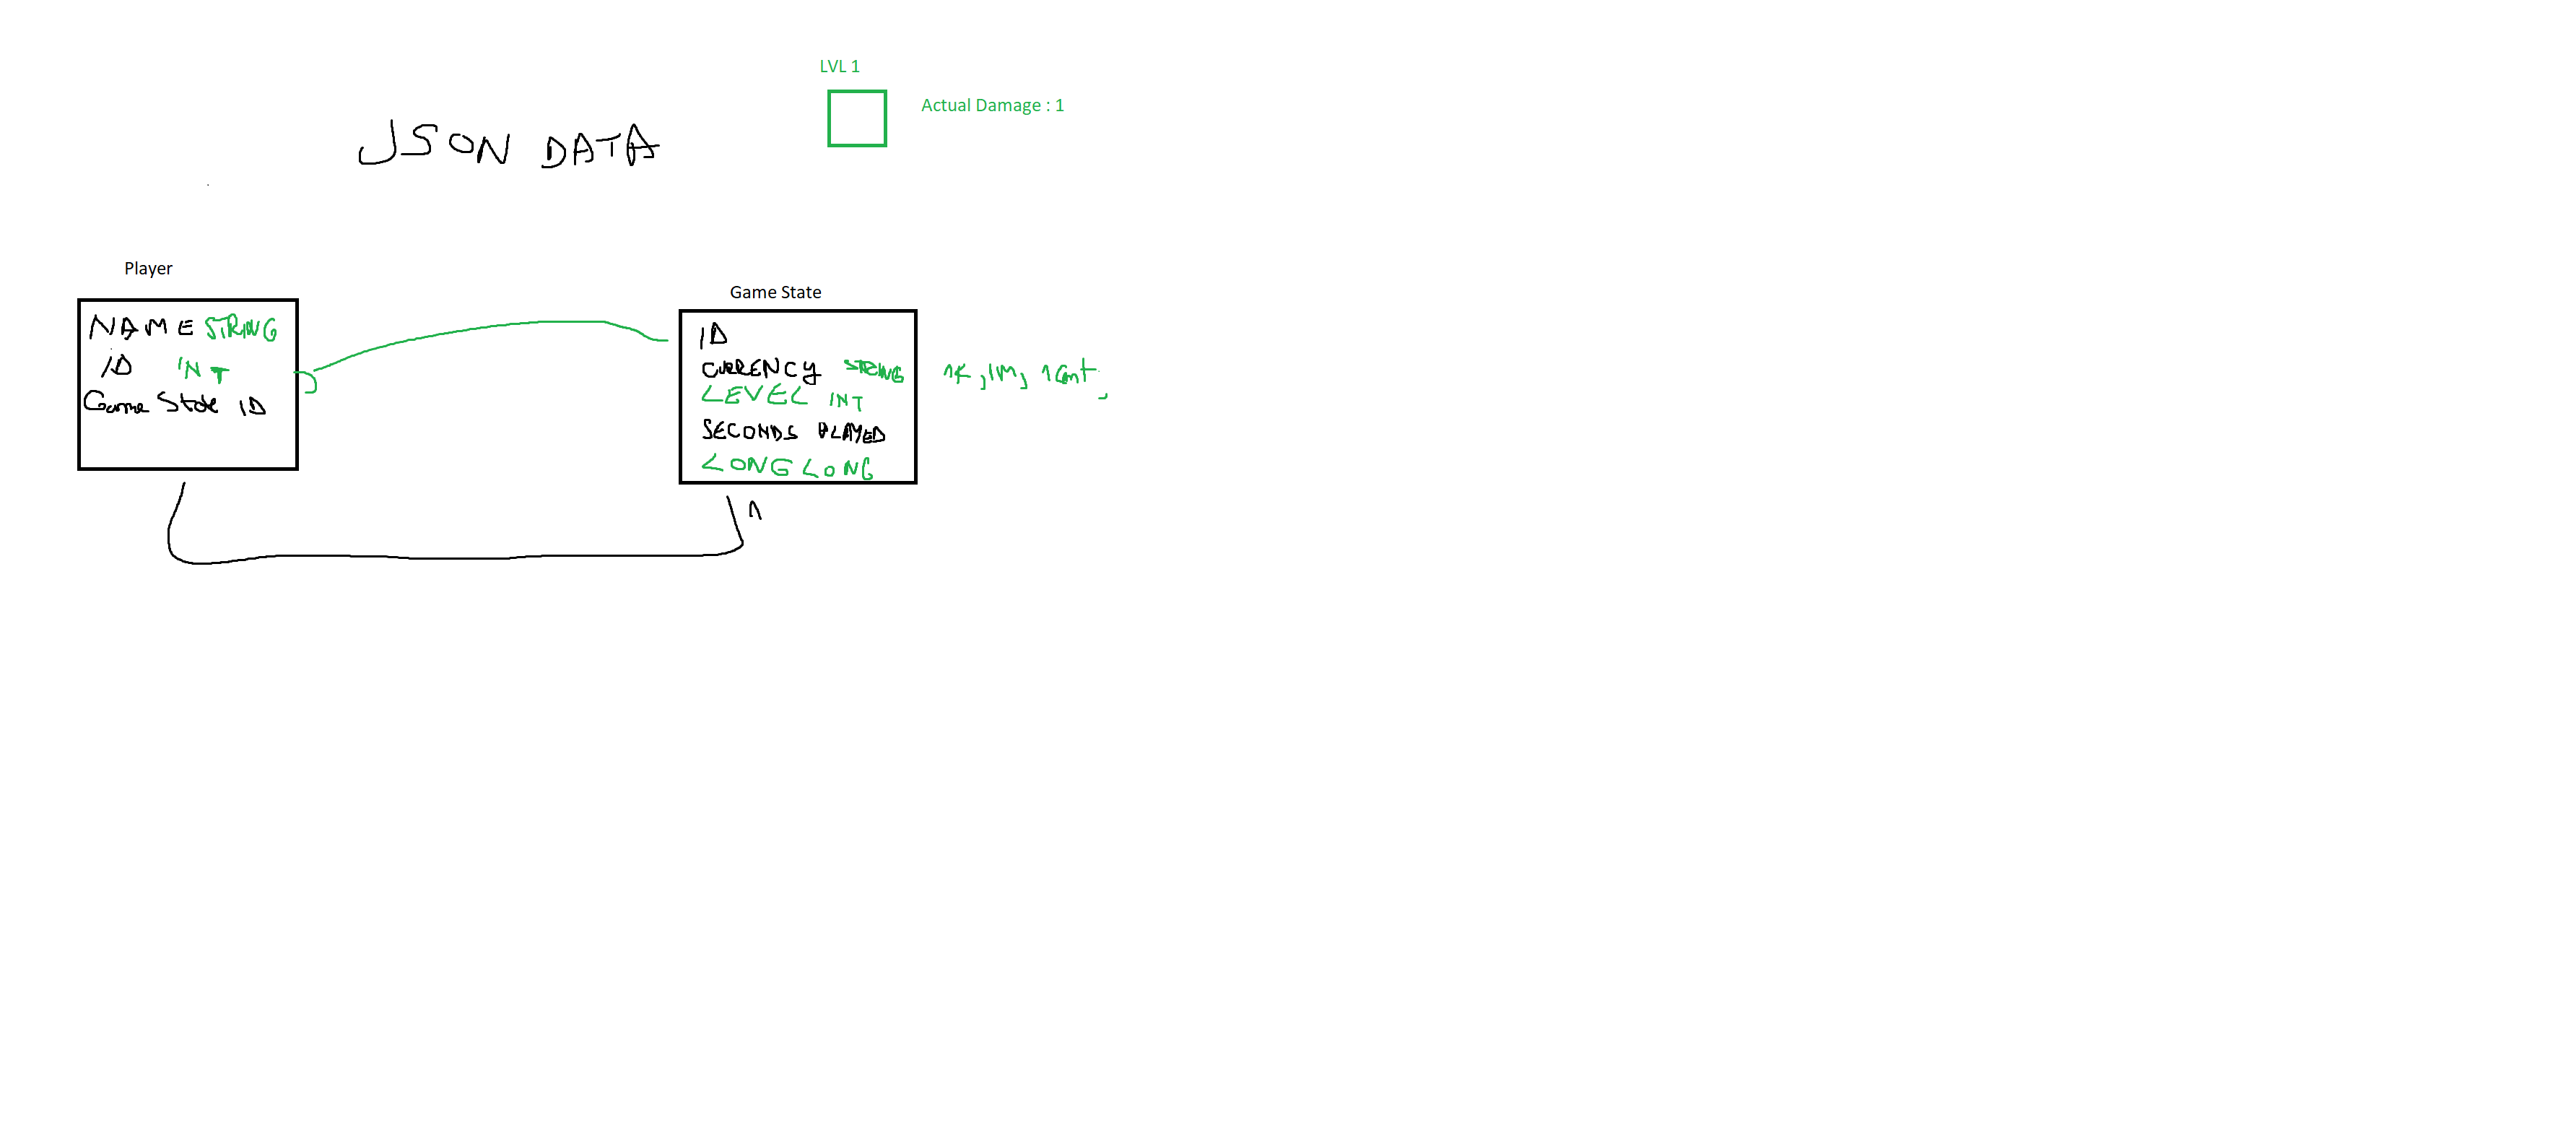 LVL 1
Actual Damage : 1
JSON DATA
Player
NAME STRING
ID INT
Game State ID
Game State
ID
CURRENCY STRING 1K, 1M, 1Cent,
LEVEL INT
SECONDS PLAYED
LONG LONG